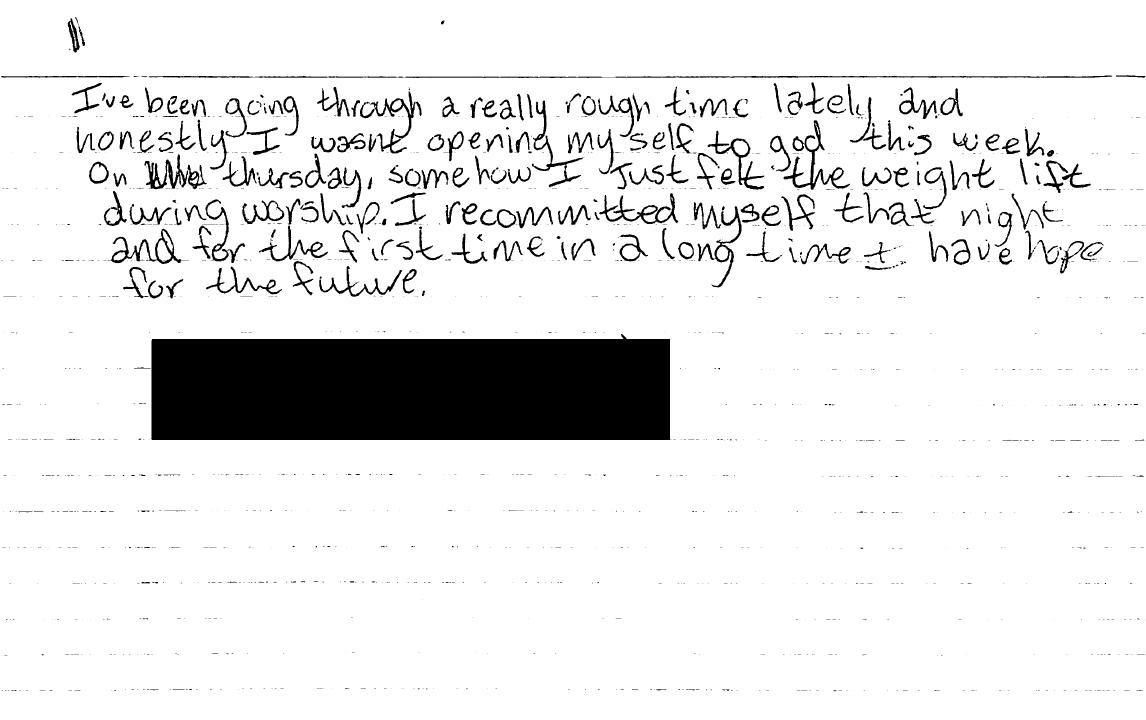 I've been going through a really rough time lately and
honestly I wasnt opening my self to god this week.
On thursday, somehow I Just felt the weight lift
during worship. I recommitted myself that night
and for the first time in a long time I have hope
for the future.